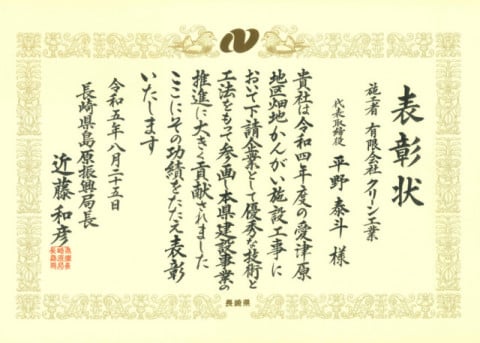 表彰状
施工者 有限会社 クリーン工業
代表取締役 平野 泰斗 様
貴社は令和四年度の愛津原
地区畑地かんがい施設工事に
おいて下請企業として優秀な技術と
工法をもって参画し本県建設事業の
推進に大きく貢献されました
ここにその功績をたたえ表彰
いたします
令和五年八月二十五日
長崎県島原振興局長
近藤和彦
長崎県